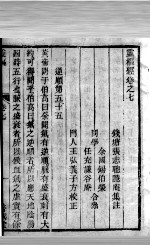 靈樞經卷之七
錢塘張志聰隱庵集註
同學
余國錫伯榮
任充谷庵
合參
門人王弘義子方校正
逆順第五十五
黃帝問于伯高曰余聞氣有逆順脈有盛衰刺有大
約可得聞乎伯高曰氣之逆順者所以應天地陰陽
四時五行也脈之盛衰者所以候血氣之虛實有餘